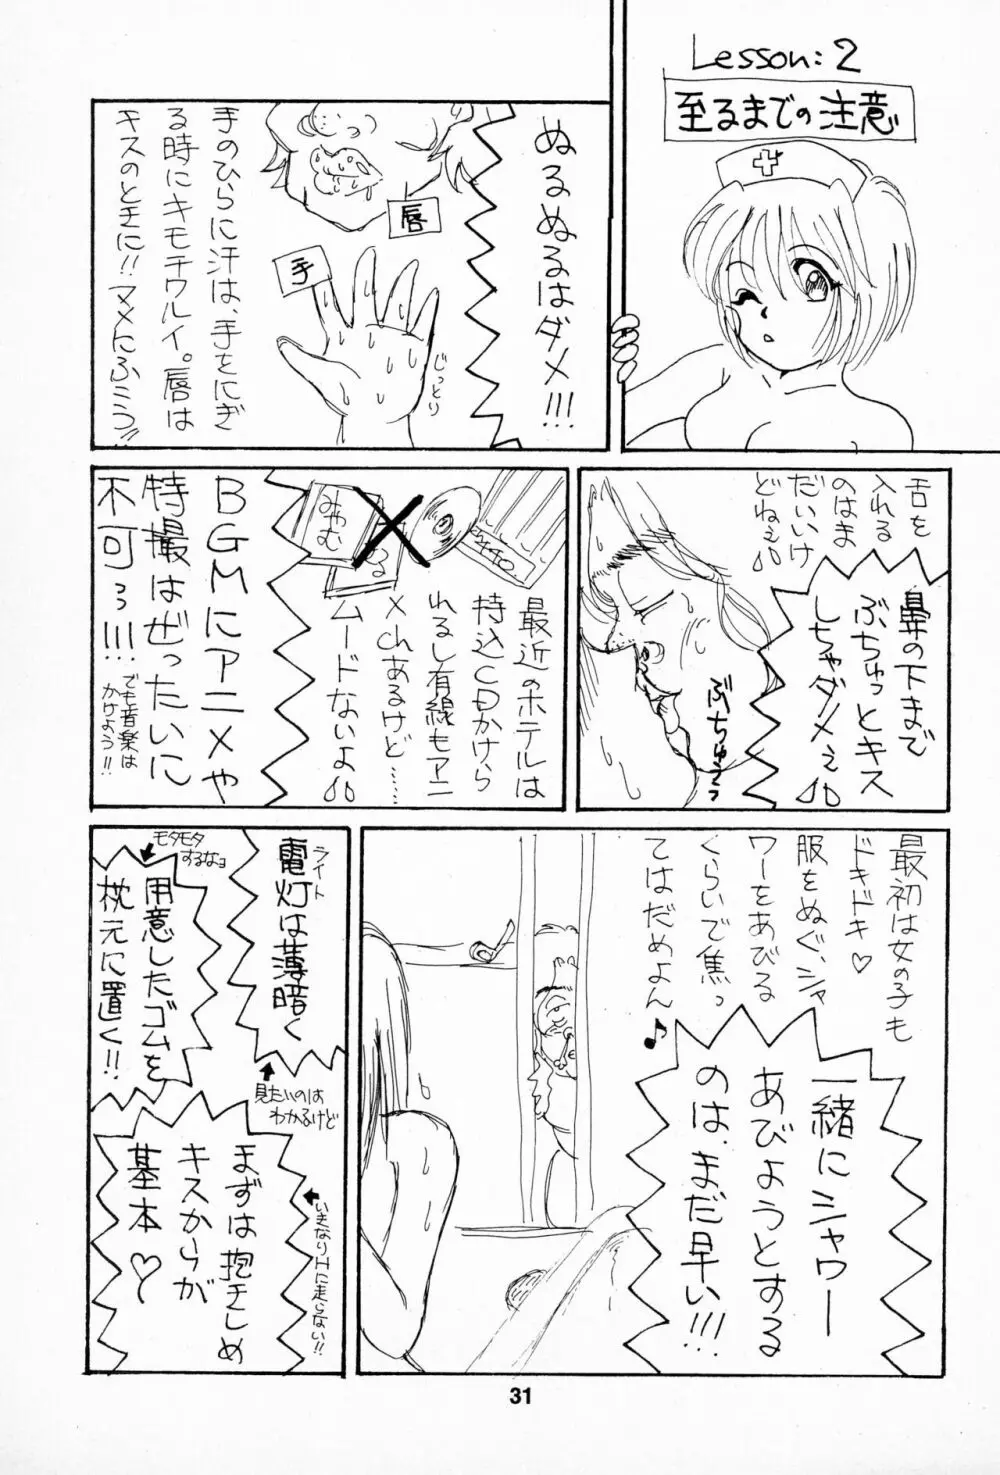 Lesson:2
至るまでの注意
ぬるぬるはダメ!!!
唇
手
じっとり
手のひらに汗は、手をにぎ
る時にキモチワルイ。唇は
キスのときに!!マメにふこう!!
舌を
入れる
のはま
だいいけ
どねぇ
鼻の下まで
ぶちゅっとキス
しちゃダメぇ
ぶちゅうっ
440
みやむ
最近のホテルは
持込CDかけら
れるし有線もアニ
メchあるけど……
ムードないよ
BGMにアニメや
特撮はぜったいに
不可っ!!!
でも音楽は
かけよう!!
最初は女の子も
ドキドキ♡
服をぬぐ、シャ
ワーをあびる
くらいで焦っ
てはだめよん♪
一緒にシャワー
あびようとする
のは、まだ早い!!!
ライト
電灯は薄暗く
見たいのは
わかるけど
モタモタ
するなヨ
用意したゴムを
枕元に置く!!
まずは抱きしめ
キスからが
基本♡
いきなりHに走らない!!
31